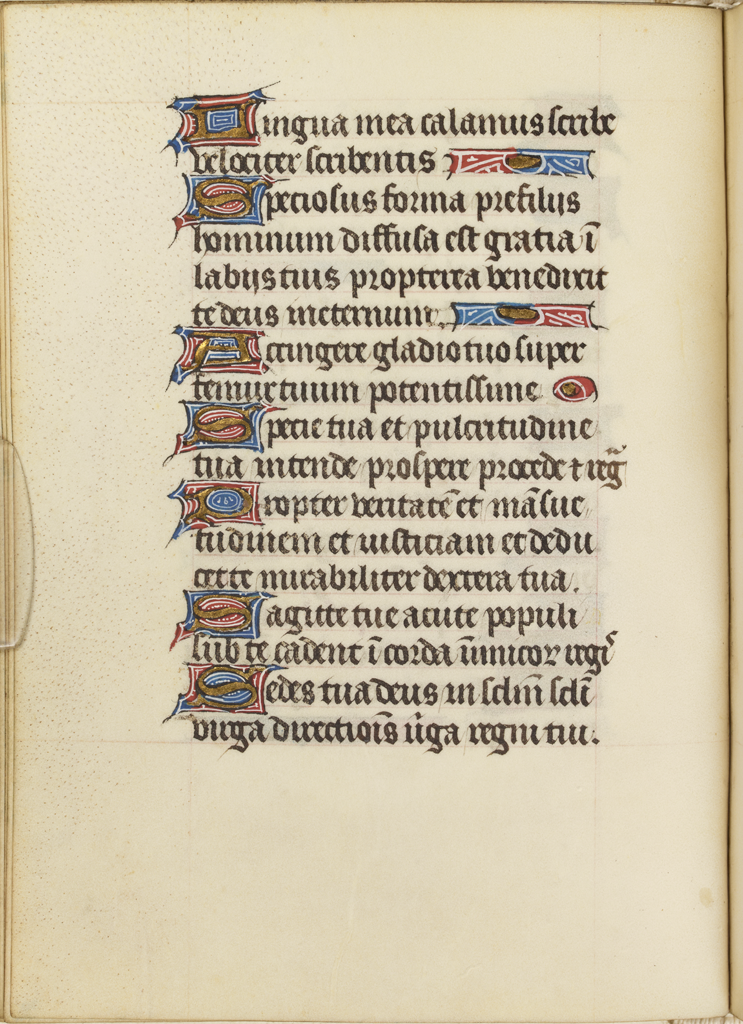 Lingua mea calamus scribe
velociter scribentis
Speciosus forma prefilijs
hominum diffusa est gratia ī
labijs tuis propterea benedixit
te deus ineternum.
Accingere gladio tuo super
femur tuum potentissime
Specie tua et pulcritudine
tua intende prospere procede ⁊ regͣ
Propter veritatē et māsue
tudinem et iusticiam et dedu
cette mirabiliter dextera tua.
Sagitte tue acute populi
sub te cadent ī corda īimicoꝝ regꝭ
Sedes tua deus in sclm̄ sclī
virga directiōis ūga regni tui.